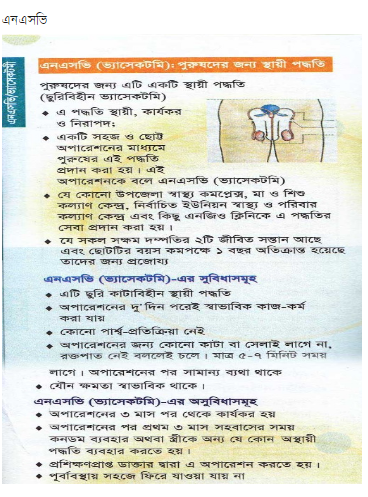 এনএসভি
এনএসভি/ভ্যাসেকটমী
এনএসভি (ভ্যাসেকটমি): পুরুষদের জন্য স্থায়ী পদ্ধতি
পুরুষদের জন্য এটি একটি স্থায়ী পদ্ধতি
(ছুরিবিহীন ভ্যাসেকটমি)
◆ এ পদ্ধতি স্থায়ী, কার্যকর
ও নিরাপদ;
◆ একটি সহজ ও ছোট্ট
অপারেশনের মাধ্যমে
পুরুষের এই পদ্ধতি
প্রদান করা হয়। এই
অপারেশনকে বলে এনএসভি (ভ্যাসেকটমি)
◆ যে কোনো উপজেলা স্বাস্থ্য কমপ্লেক্স, মা ও শিশু
কল্যাণ কেন্দ্র, নির্বাচিত ইউনিয়ন স্বাস্থ্য ও পরিবার
কল্যাণ কেন্দ্র এবং কিছু এনজিও ক্লিনিকে এ পদ্ধতির
সেবা প্রদান করা হয়।
◆ যে সকল সক্ষম দম্পতির ২টি জীবিত সন্তান আছে
এবং ছোটটির বয়স কমপক্ষে ১ বছর অতিক্রান্ত হয়েছে
তাদের জন্য প্রজোয্য
এনএসভি (ভ্যাসেকটমি)-এর সুবিধাসমূহ
◆ এটি ছুরি কাটাবিহীন স্থায়ী পদ্ধতি
◆ অপারেশনের দু' দিন পরেই স্বাভাবিক কাজ-কর্ম
করা যায়
◆ কোনো পার্শ্ব-প্রতিক্রিয়া নেই
◆ অপারেশনের জন্য কোনো কাটা বা সেলাই লাগে না,
রক্তপাত নেই বললেই চলে। মাত্র ৫-৭ মিনিট সময়
লাগে। অপারেশনের পর সামান্য ব্যথা থাকে
◆ যৌন ক্ষমতা স্বাভাবিক থাকে।
এনএসভি (ভ্যাসেকটমি)-এর অসুবিধাসমূহ
◆ অপারেশনের ৩ মাস পর থেকে কার্যকর হয়
◆ অপারেশনের পর প্রথম ৩ মাস সহবাসের সময়
কনডম ব্যবহার অথবা স্ত্রীকে অন্য যে কোন অস্থায়ী
পদ্ধতি ব্যবহার করতে হয়।
◆ প্রশিক্ষণপ্রাপ্ত ডাক্তার দ্বারা এ অপারেশন করতে হয়।
◆ পূর্বাবস্থায় সহজে ফিরে যাওয়া যায় না